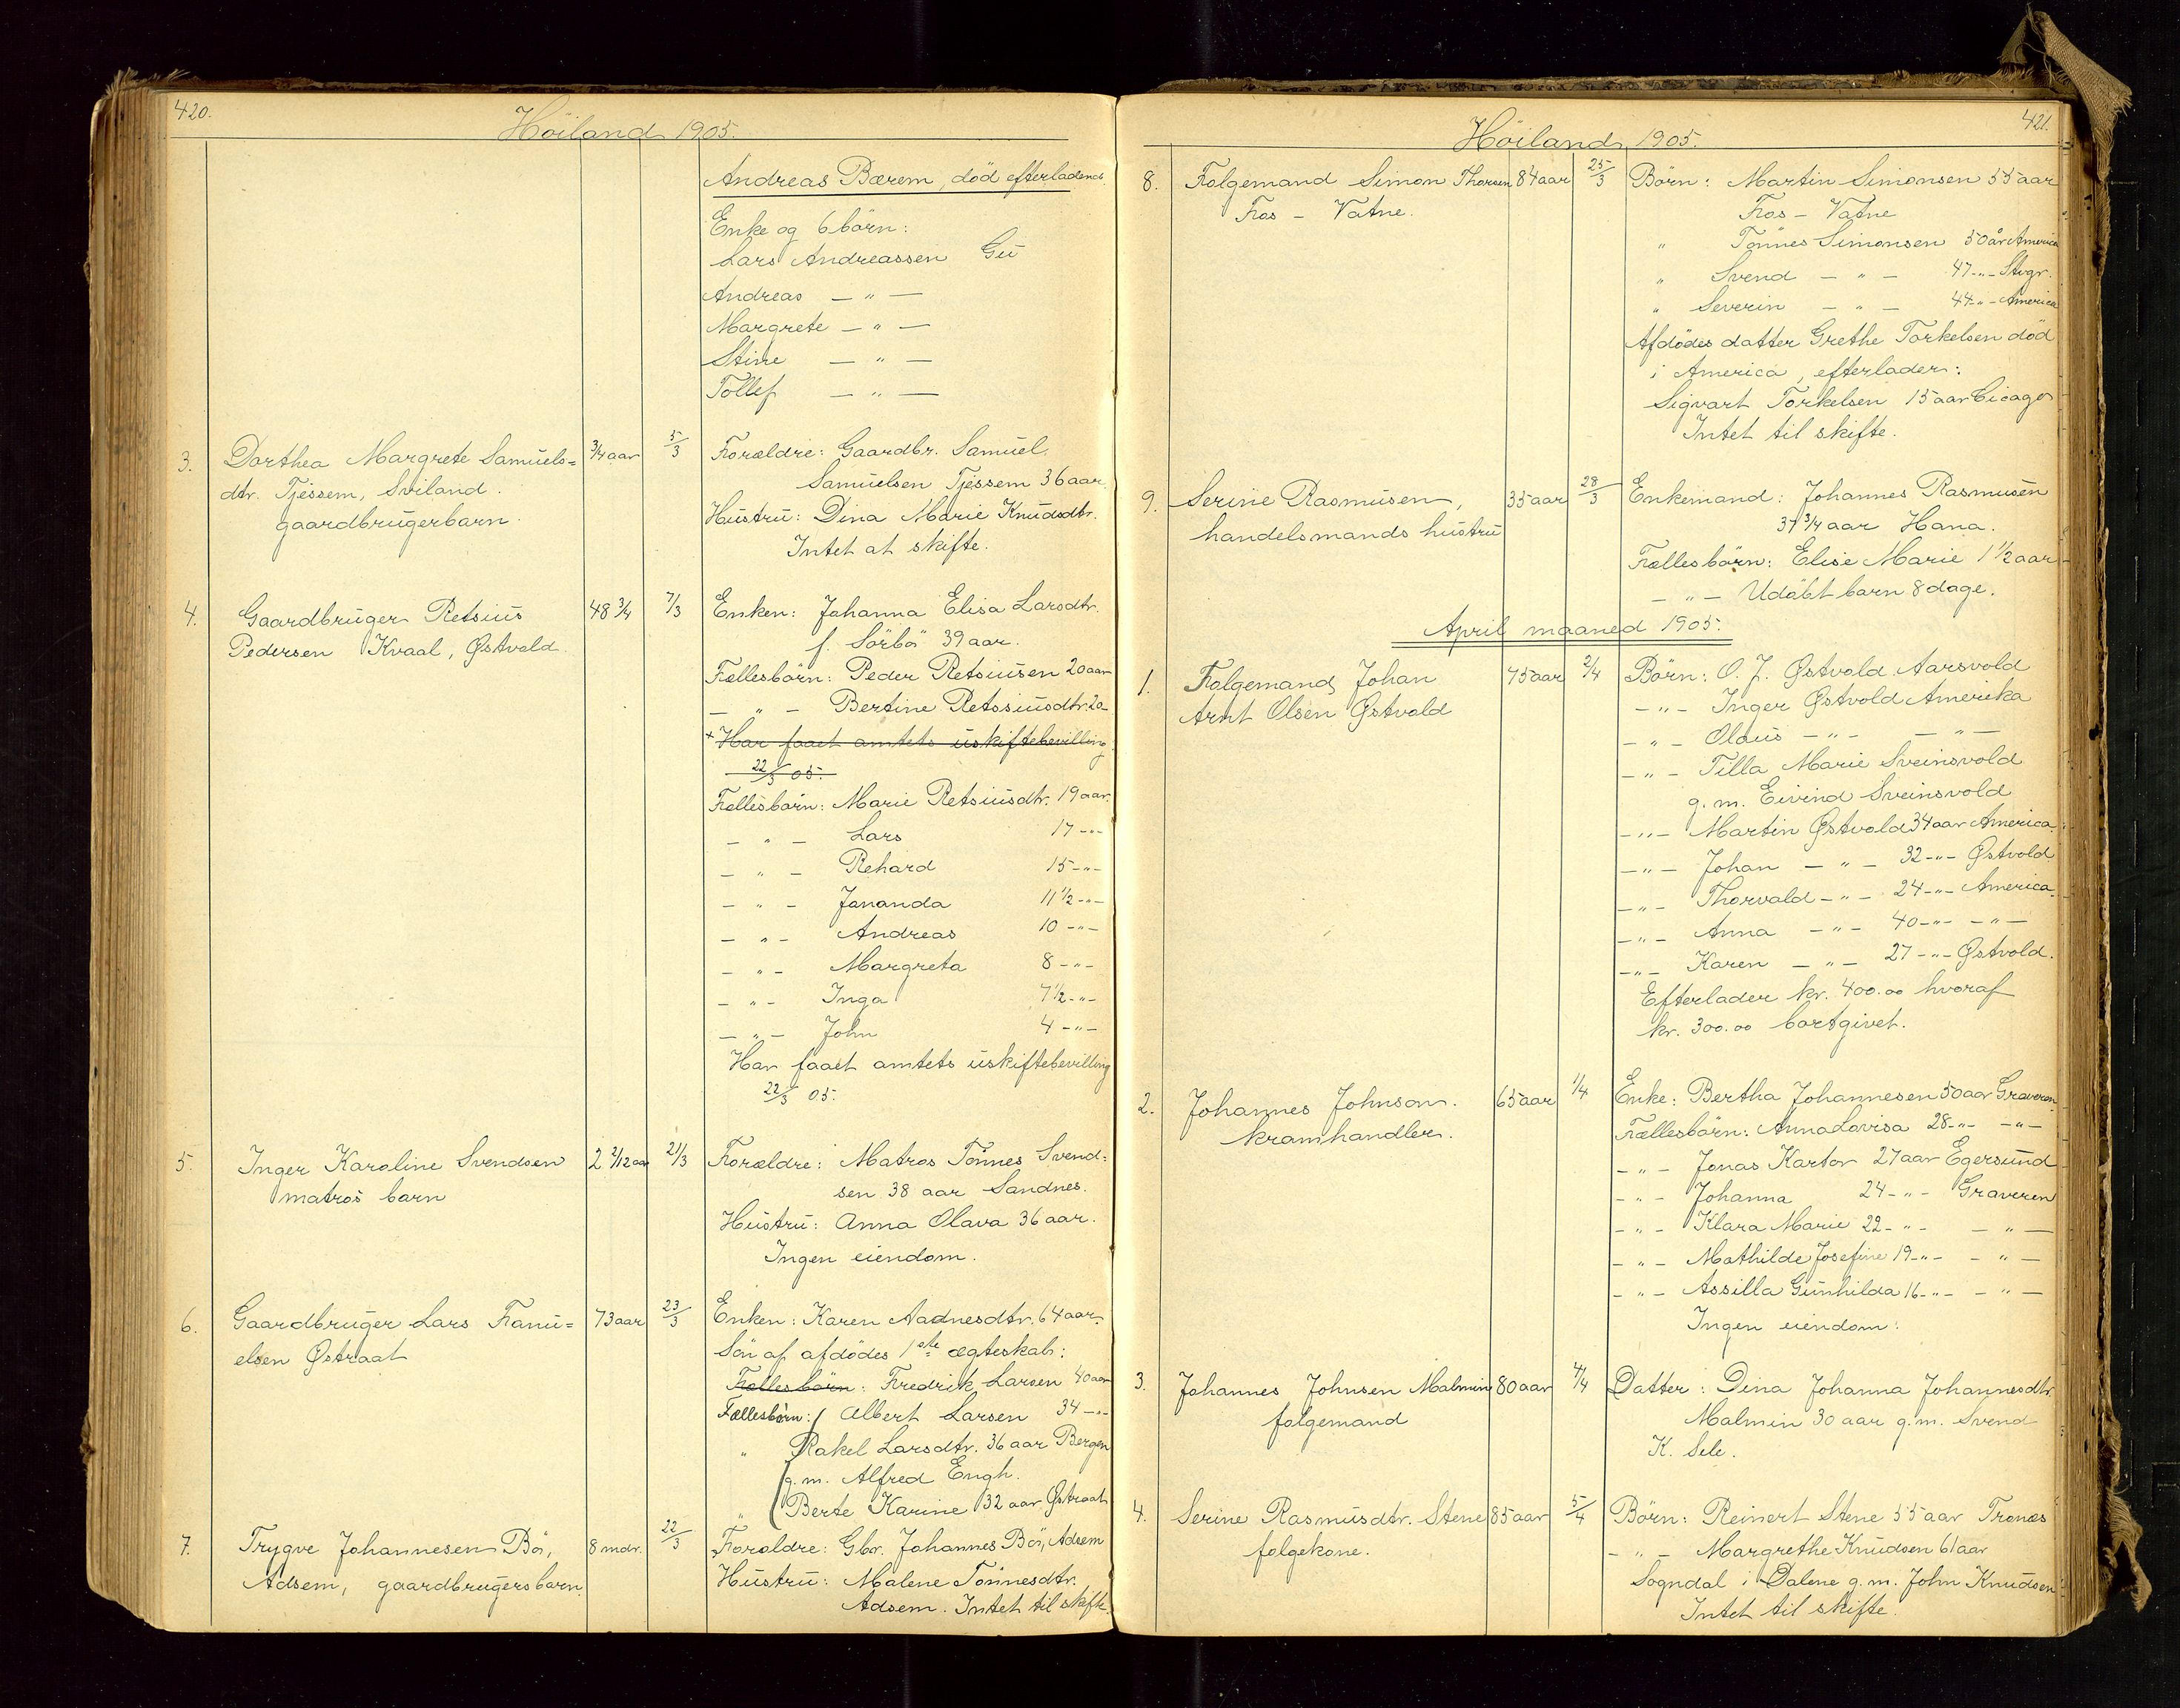 420.
Höiland 1905.
Andreas Bærem, død efterladende
Enke og 6 börn:
Lars Andreassen Gu
Andreas — " —
Margrete — " —
Stine — " —
Tollef — " —
3. Dorthea Margrete Samuels= 3/4 aar 5/3 Forældre: Gaardbr. Samuel
dtr. Tjessem, Sviland. Samuelsen Tjessem 36 aar.
gaardbrugerbarn. Hustru: Dina Marie Knudsdtr.
Intet at skifte.
4. Gaardbruger Retsius 48 3/4 7/3 Enken: Johanna Elisa Larsdtr.
Pedersen Kvaal, Østvold. f. Sörbö 39 aar.
Fællesbörn: Peder Retsiusen 20 aar
— " — Bertine Retssiusdtr. 20
+ Har faaet amtets uskiftebevilling
22/3 05.
Fællesbörn: Marie Retsiusdtr. 19 aar.
— " — Lars 17 -"-
— " — Rehard 15 -"-
— " — Jananda 11 1/2 -"-
— " — Andreas 10 -"-
— " — Margreta 8 -"-
— " — Inga 7 1/2 -"-
— " — John 4 -"-
Har faaet amtets uskiftebevilling
22/3 05.
5. Inger Karoline Svendsen 2 2/12 aar 21/3 Forældre: Matros Tönnes Svend=
matros barn sen 38 aar Sandnes.
Hustru: Anna Olava 36 aar.
Ingen eiendom.
6. Gaardbruger Lars Fanu= 73 aar 23/3 Enken: Karen Aadnesdtr. 64 aar.
elsen Østraat Sön af afdödes 1ste ægteskab:
Fællesbörn: Fredrik Larsen 40 aar
Fællesbörn: Albert Larsen 34 -"-
" Rakel Larsdtr. 36 aar Bergen
g. m. Alfred Engh.
" Berte Karine 32 aar Østraat
7. Trygve Johannesen Bö, 8 mdr. 22/3 Forældre: Gbr. Johannes Bö, Adsem
Adsem, gaardbrugersbarn. Hustru: Malene Tönnesdtr.
Adsem. Intet til skifte.
421.
Höiland 1905.
8. Folgemand Simon Thorsen 84 aar 25/3 Börn: Martin Simonsen 55 aar
Fos - Vatne. Fos - Vatne
" Tönnes Simonsen 50 år America
" Svend — " — 47 -"- Stvgr.
" Severin — " — 44 -"- America
Afdödes datter Grethe Torkelsen död
i America, efterlader:
Sigvart Torkelsen 15 aar Cicago
Intet til skifte.
9. Serine Rasmusen, 35 aar 28/3 Enkemand: Johannes Rasmusen
handelsmands hustru 37 3/4 aar Hana.
Fællesbörn: Elise Marie 1 1/2 aar
— " — Udöbt barn 8 dage.
April maaned 1905.
1. Folgemand Johan 75 aar 2/4 Börn: O. J. Østvold Aarsvold
Arnt Olsen Østvold — " — Inger Østvold Amerika
— " — Olaus — " — — " —
— " — Tilla Marie Sveinsvold
g. m. Eivind Sveinsvold
— " — Martin Østvold 34 aar America.
— " — Johan — " — 32 -"- Østvold.
— " — Thorvald — " — 24 -"- America.
— " — Anna — " — 40 -"- — " —
— " — Karen — " — 27 -"- Østvold.
Efterlader kr. 400.00 hvoraf
kr. 300.00 bortgivet.
2. Johannes Johnson. 65 aar 1/4 Enke: Bertha Johannesen 50 aar Graveren.
kramhandler. Fællesbörn: Anna Lovisa 28 -"- — " —
— " — Jonas Kartor 27 aar Egersund
— " — Johanna 24 -"- Graveren
— " — Klara Marie 22 -"- — " —
— " — Mathilde Josefine 19 -"- — " —
— " — Assilla Gunhilda 16 -"- — " —
Ingen eiendom.
3. Johannes Johnsen Malmin 80 aar 4/4 Datter: Dina Johanna Johannesdtr.
folgemand Malmin 30 aar g. m. Svend
K. Sele.
4. Serine Rasmusdtr. Stene 85 aar 5/4 Börn: Reinert Stene 55 aar Tronæs
folgekone. — " — Margrethe Knudsen 61 aar
Sogndal i Dalene g. m. John Knudsen
Intet til skifte.